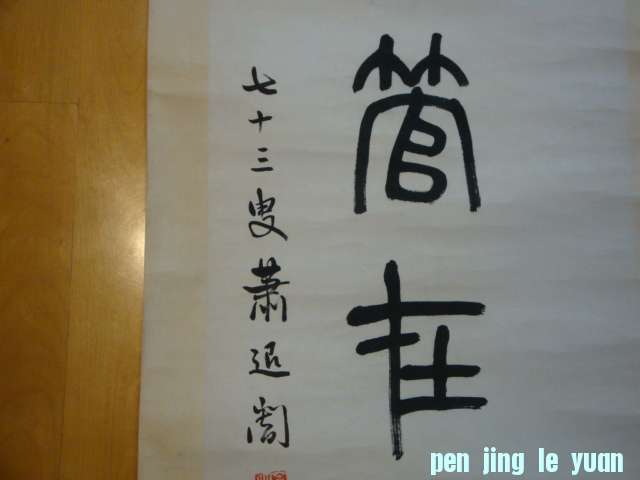 管在
七十三叟蕭退闇
pen jing le yuan